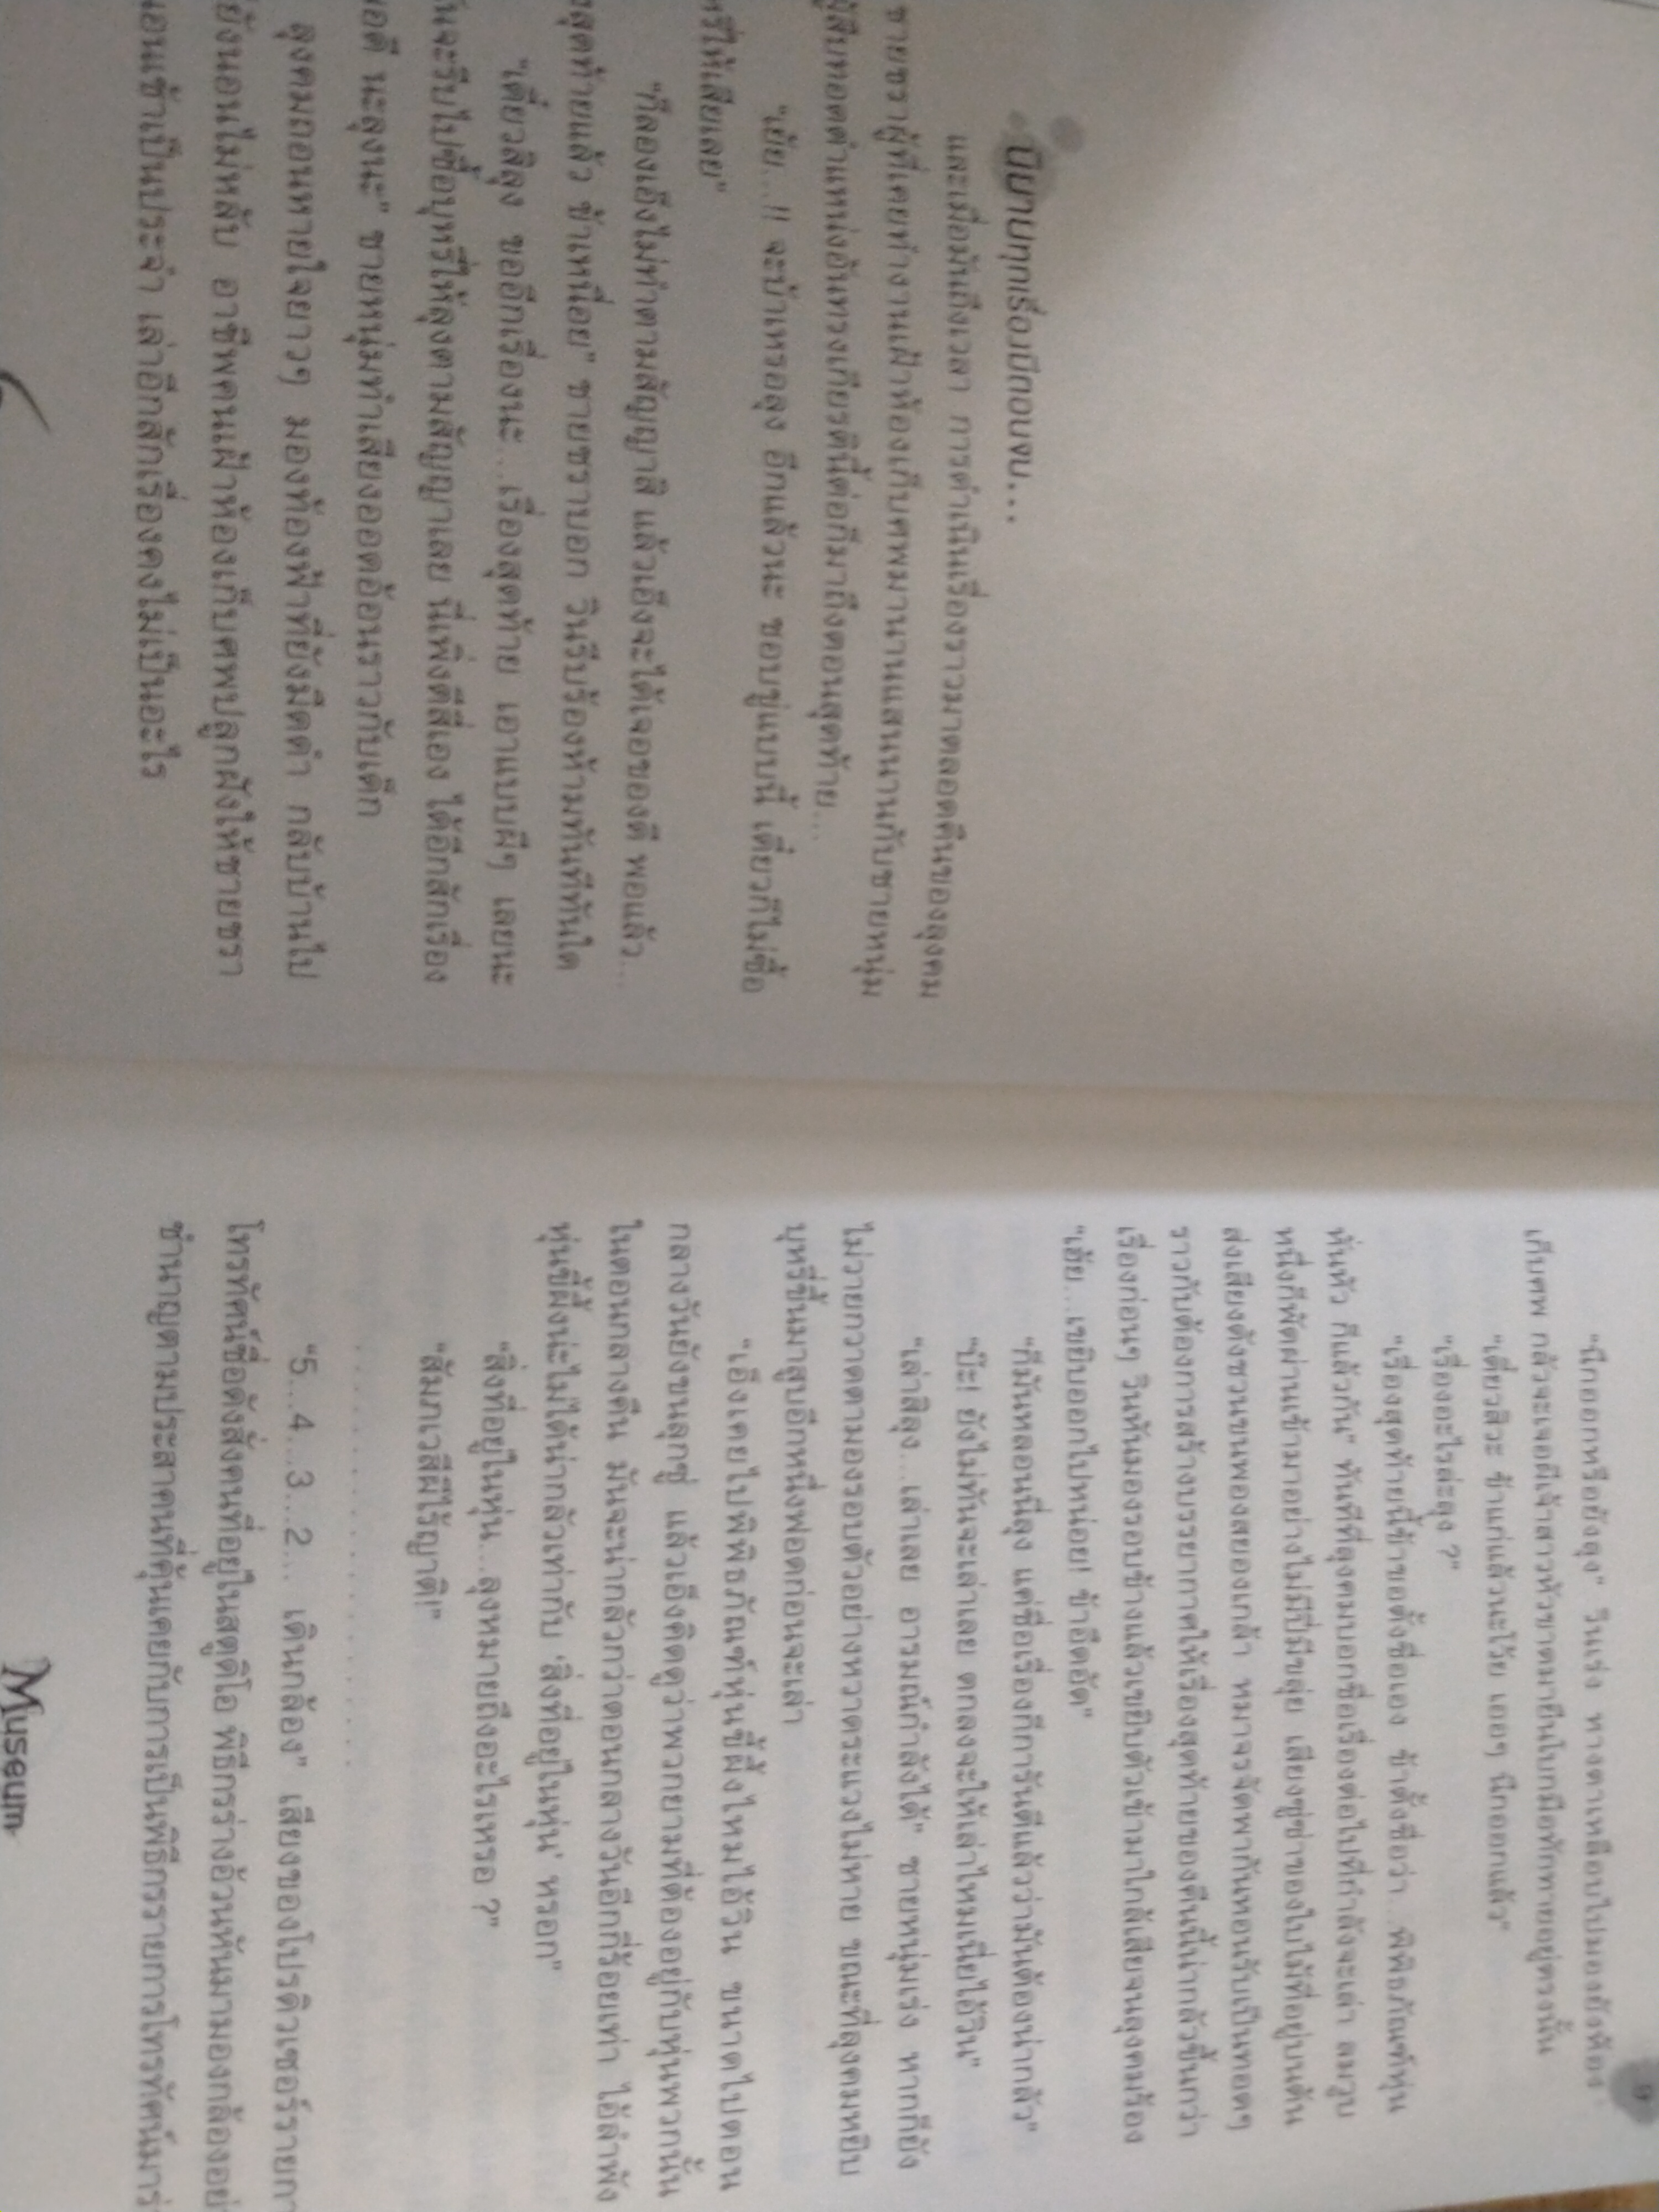 นิยายทุกเรื่องมีตอนจบ...
และเมื่อมันถึงเวลา การดำเนินเรื่องราวมาตลอดคืนของลุงคม
ชายชราผู้ที่เคยทำงานเฝ้าห้องเก็บศพมานานแสนนานกับชายหนุ่ม
ผู้สืบทอดตำแหน่งอันทรงเกียรตินี้ต่อก็มาถึงตอนสุดท้าย...
"เฮ้ย...!! จะบ้าเหรอลุง อีกแล้วนะ ชอบขู่แบบนี้ เดี๋ยวก็ไม่ซื้อ
หรี่ให้เสียเลย"
"ก็ลองเอ็งไม่ทำตามสัญญาสิ แล้วเอ็งจะได้เจอของดี พอแล้ว...
สุดท้ายแล้ว ข้าเหนื่อย" ชายชราบอก วินรีบร้องห้ามทันทีทันใด
"เดี๋ยวสิลุง ขออีกเรื่องนะ...เรื่องสุดท้าย เอาแบบผีๆ เลยนะ
จะรีบไปซื้อบุหรี่ให้ลุงตามสัญญาเลย นี่เพิ่งตีสี่เอง ได้อีกสักเรื่อง
อดี นะลุงนะ" ชายหนุ่มทำเสียงออดอ้อนราวกับเด็ก
ลุงคมถอนหายใจยาวๆ มองท้องฟ้าที่ยังมืดดำ กลับบ้านไป
ยังนอนไม่หลับ อาชีพคนเฝ้าห้องเก็บศพปลูกฝังให้ชายชรา
นอนเช้าเป็นประจำ เล่าอีกสักเรื่องคงไม่เป็นอะไร
"นึกออกหรือยังลุง" วินเร่ง หางตาเหลือบไปมองยังห้อง
เก็บศพ กลัวจะเจอผีเจ้าสาวหัวขาดมายืนโบกมือทักทายอยู่ตรงนั้น
"เดี๋ยวสิวะ ข้าแก่แล้วนะโว้ย เออๆ นึกออกแล้ว"
"เรื่องอะไรล่ะลุง ?"
"เรื่องสุดท้ายนี้ข้าขอตั้งชื่อเอง ข้าตั้งชื่อว่า...พิพิธภัณฑ์หุ่น
หั่นหัว ก็แล้วกัน" ทันทีที่ลุงคมบอกชื่อเรื่องต่อไปที่กำลังจะเล่า ลมวูบ
หนึ่งก็พัดผ่านเข้ามาอย่างไม่มีปี่มีขลุ่ย เสียงซู่ซ่าของใบไม้ที่อยู่บนต้น
ส่งเสียงดังชวนขนพองสยองเกล้า หมาจรจัดพากันหอนรับเป็นทอดๆ
ราวกับต้องการสร้างบรรยากาศให้เรื่องสุดท้ายของคืนนี้น่ากลัวขึ้นกว่า
เรื่องก่อนๆ วินหันมองรอบข้างแล้วเขยิบตัวเข้ามาใกล้เสียจนลุงคมร้อง
"เฮ้ย...เขยิบออกไปหน่อย! ข้าอึดอัด"
"ก็มันหลอนนี่ลุง แค่ชื่อเรื่องก็การันตีแล้วว่ามันต้องน่ากลัว"
"บ๊ะ! ยังไม่ทันจะเล่าเลย ตกลงจะให้เล่าไหมเนี่ยไอ้วิน"
"เล่าสิลุง...เล่าเลย อารมณ์กำลังได้" ชายหนุ่มเร่ง หากก็ยัง
ไม่วายกวาดตามองรอบตัวอย่างหวาดระแวงไม่หาย ขณะที่ลุงคมหยิบ
บุหรี่ขึ้นมาสูบอีกหนึ่งฟอดก่อนจะเล่า
"เอ็งเคยไปพิพิธภัณฑ์หุ่นขี้ผึ้งไหมไอ้วิน ขนาดไปตอน
กลางวันยังขนลุกซู่ แล้วเอ็งคิดดูว่าพวกยามที่ต้องอยู่กับหุ่นพวกนั้น
ในตอนกลางคืน มันจะน่ากลัวกว่าตอนกลางวันอีกกี่ร้อยเท่า ไอ้ลำพัง
หุ่นขี้ผึ้งน่ะไม่ได้น่ากลัวเท่ากับ 'สิ่งที่อยู่ในหุ่น' หรอก"
"สิ่งที่อยู่ในหุ่น...ลุงหมายถึงอะไรเหรอ ?"
"สัมภเวสีผีไร้ญาติ!"
. . . . . . . . . . . . . . . . . . . . . . . .
"5...4...3...2... เดินกล้อง" เสียงของโปรดิวเซอร์รายกา
โทรทัศน์ชื่อดังสั่งคนที่อยู่ในสตูดิโอ พิธีกรร่างอ้วนหันมามองกล้องอย่
ชำนาญตามประสาคนที่คุ้นเคยกับการเป็นพิธีกรรายการโทรทัศน์มาร่
Museum